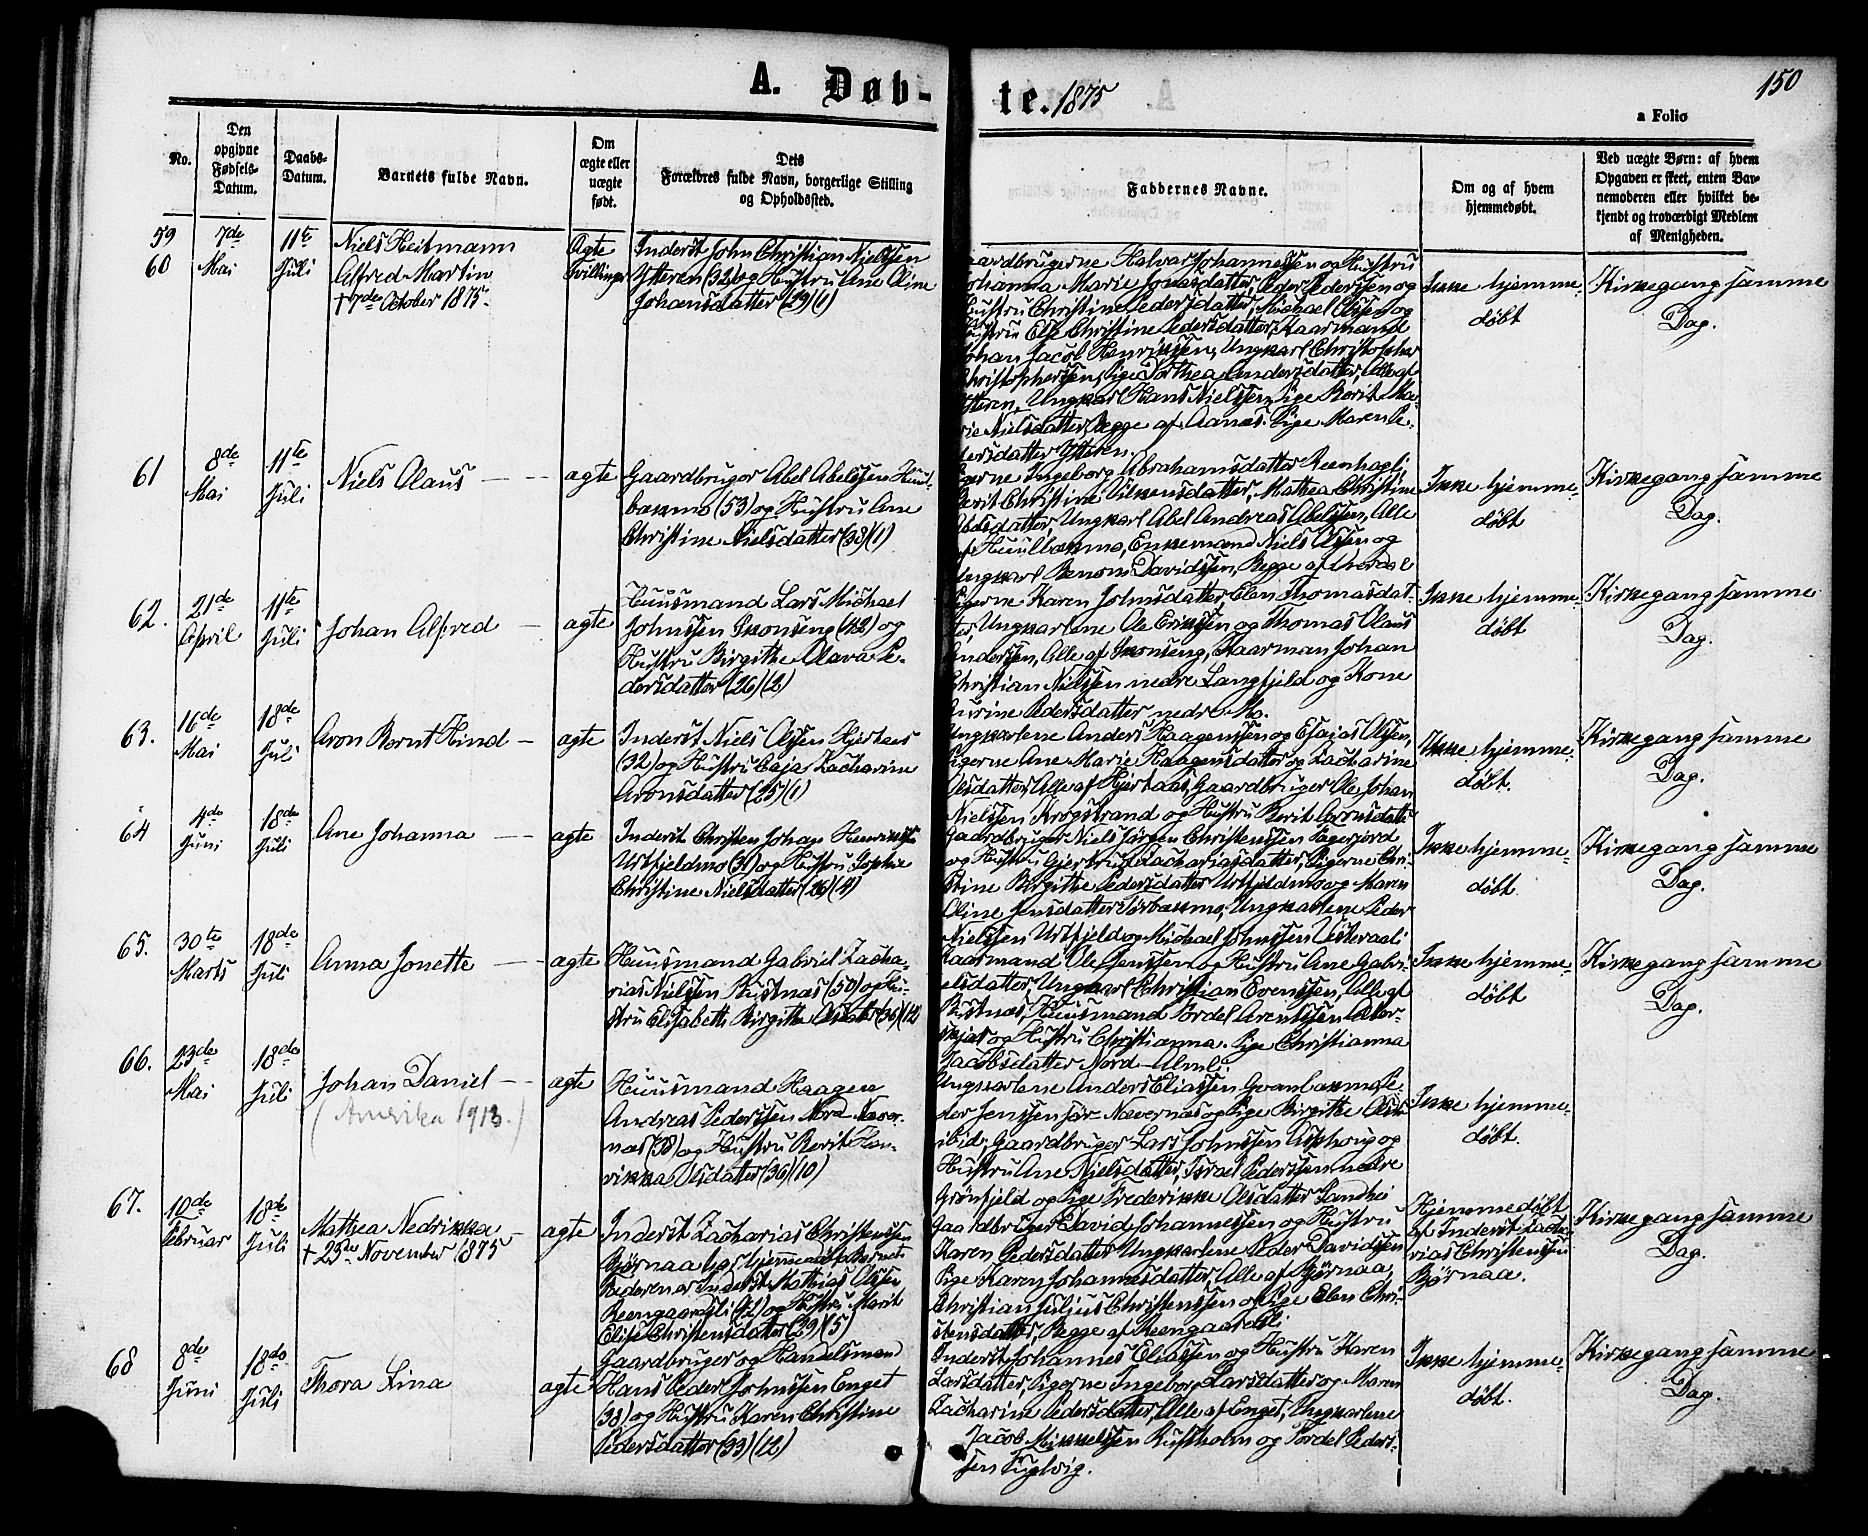 A. Døb-
te. 1875
150
a Folio
No.
Den
opgivne
Fødsels-
Datum.
Daabs-
Datum.
Barnets fulde Navn.
Om
ægte eller
uægte
født.
Dets
Forældres fulde Navn, borgerlige Stilling
og Opholdssted.
Faddernes Navne.
Om og af hvem
hjemmedøbt.
Ved uægte Børn: af hvem
Opgaven er skeet, enten Bar-
nemoderen eller hvilket be-
kjendt og troværdigt Medlem
af Menigheden.
59
60
7de
Mai
11te
Juli
Niels Heitmann
Alfred Martin
† 7de October 1875.
Ægte
Tvillinger
Inderst John Christian Nielsen
Ytteren (32) og Hustru Ane Oline
Johansdatter (29) (1)
Gaardbrugerne Halvor Johannessen og Hustru
Johanna Marie Jonasdatter, Peder Pederssen og
Hustru Christine Pedersdatter, Michael Olssen og
Hustru Else Christine Pedersdatter, Kaarmand
Johan Jacob Henrikssen, Ungkarl Christopher
Christophersen, Pige Dorthea Andersdatter, Alle af
Ytteren, Ungkarl Hans Nielssen, Pige Berit Ma-
rie Nielsdatter, Begge af Aanæs. Pige Maren Pe-
dersdatter Ytteren.
Ikke hjemme-
døbt
Kirkegang samme
Dag.
61
8de
Mai
11te
Juli
Niels Olaus
ægte
Gaardbruger Abel Abelssen
bakmo (53) og Hustru Ane
Christine Nielsdatter (38) (1)
Pigerne Ingeborg Abrahamsdatter
Berit Christine, Mathea Christine
Abelsdatter, Ungkarl Abel Andreas Abelssen, Alle
af, Enkemand Niels Olssen og
Ungkarl Benoni Davidssen, Begge af
Ikke hjemme-
døbt
Kirkegang samme
Dag.
62.
21de
April
11te
Juli
Johan Alfred
ægte
Huusmand Lars Michael
Johnssen Skonseng (42) og
Hustru Birgithe Olava Pe-
dersdatter (26) (2)
Pigerne Karen Johnsdatter, Elen Thomasdat-
ter, Ungkarlene Ole Erikssen og Thomas Olaus
Anderssen, Alle af Skonseng, Kaarman Johan
Christian Nielssen nedre Langfjeld og Kone
Pedersdatter nedre Mo.
Ikke hjemme-
døbt
Kirkegang samme
Dag.
63.
16de
Mai
18de
Juli
Aron Bernt Hind
ægte
Inderst Niels Olssen Hjertaas
(32) og Hustru Caja Zacharine
Aronsdatter (25) (1)
Ungkarlene Anders Haagenssen og Esaias Olssen,
Pigerne Ane Marie Haagensdatter og Zacharine
Olsdatter, Alle af Hjertaas, Gaardbruger Ole Johan
Nielssen Krogstrand og Hustru Berit Aronsdatter
Ikke hjemme-
døbt.
Kirkegang samme
Dag.
64
4de
Juni
18de
Juli
Ane Johanna
ægte
Inderst Christen Johan Henrikssen
Urtfjeldmo (31) og Hustru Sophie
Christine Nielsdatter (26) (4)
Gaardbruger Niels Jørgen Christenssen Fagerjord
og Hustru Gjertrud Zachariasdatter, Pigerne Chri-
stine Birgithe Pedersdatter Urtfjeldmo og Maren
Oline Jensdatter, Ungkarlene Peder
Nielssen Urtfjeld og Michael Johnssen
Ikke hjemme-
døbt
Kirkegang samme
Dag.
65.
30te
Marts
18de
Juli
Anna Jonette
ægte
Huusmand Gabriel Zacha-
rias Nielssen Bustnæs (50) og Hu-
stru Elisabeth Birgithe Olsdatter (36) (12)
Kaarmand Ole Jenssen og Hustru Ane Gabri-
elsdatter, Ungkarl Christian Evenssen, Alle af
Bustnæs, Huusmand Tordel Arentssen
og Hustru Christianna. Pige Christianna
Jacobsdatter Nord-Almli
Ikke hjemme-
døbt
Kirkegang samme
Dag.
66.
23de
Mai
18de
Juli
Johan Daniel
(Amerika 1913.)
ægte
Huusmand Haagen
Andreas Pederssen Nord Næver-
næs (38) og Hustru Berit Hen-
rikka Olsdatter (36) (10)
Ungkarlene Anders Eliassen, Pe-
der Jenssen Sør Nævernæs og Pige Birgithe
ibid, Gaardbruger Lars Johnssen og
Hustru Ane Nielsdatter, Israel Pederssen nedre
Grønfjeld og Pige Frederikke Olsdatter Sandhei
Ikke hjemme-
døbt.
67.
10de
Februar
18de
Juli
Mathea Nedrikka
† 23de November 1875
ægte
Inderst Zacharias Christenssen
Bjørnaa har hjemmedøbt Barnet.
Forældrene er Inderst Mathias Olssen
Reengaardsli (42) og Hustru Marit
Elise Christensdatter (39) (5)
Gaardbruger David Johannessen og Hustru
Karen Pedersdatter, Ungkarlene Peder Davidssen
Pige Karen Johannesdatter, Alle af Bjørnaa,
Christian Julius Christenssen og Pige Elen Chri-
stensdatter, Begge af Reengaardsli
Hjemmedøbt
af Inderst Zacha-
rias Christenssen
Bjørnaa.
Kirkegang samme
Dag.
68
8de
Juni
18de
Juli
Thora Lina
ægte
Gaardbruger og Handelsmand
Hans Peder Johnssen Enget
(38) og Hustru Karen Christine
Pedersdatter (33) (12)
Inderst Johannes Eliassen og Hustru Karen
Larsdatter, Pigerne Ingeborg Larsdatter og Maren
Zacharine Pedersdatter, Alle af Enget, Ungkarlene
Jacob Mikkelssen Rufsholm og Tordel Peders-
sen Fuglvig.
Ikke hjemme-
døbt.
Kirkegang samme
Dag.